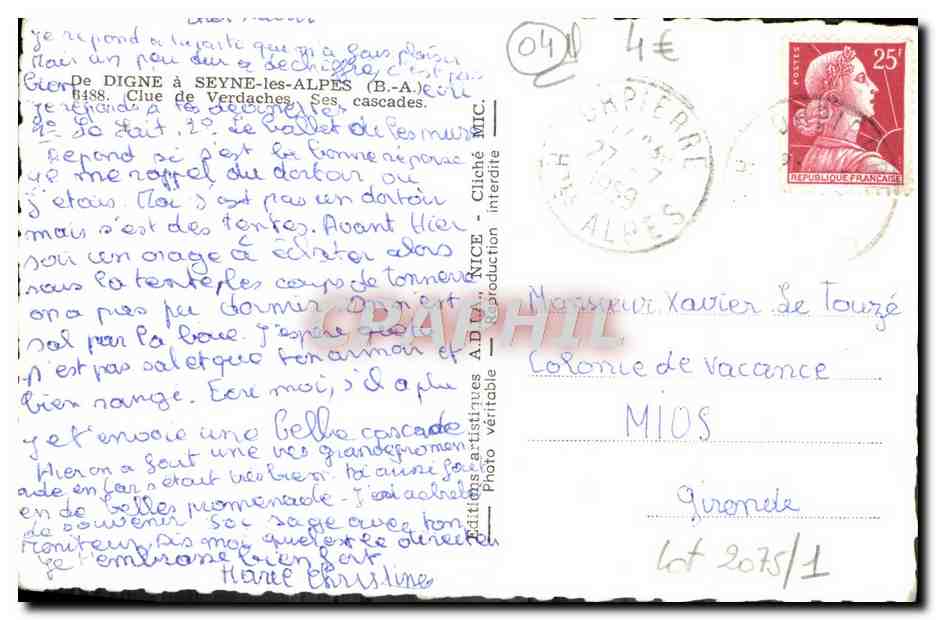 Cher Xavier
je repond a
Mais un peu dur a dechiffre, c'est pas
bien écri
De DIGNE à SEYNE-les-ALPES (B.-A.)
6488. Clue de Verdaches. Ses cascades.
je repond a
1º Le Lait, 2º Le ballet de
Repond si s'est la bonne réponse
je me rappel du dortoir ou
j'étais. Moi s'est pas un dortoir
mais s'est des tentes. Avant Hier
soir un orage à éclater alors
sous la tente les coups de tonnerre
on a pas pu dormir. On n'est
sal par la boue. J'espère que tu
n'est pas sal et que ton armoir et
bien rangé. Ecri moi, s'il a plu
je t'envoie une belle cascade
Hier on a fait une très grande promen
ade en car s'était très bien. toi aussi fait
en de belles promenade. J'ai acheté
de souvenir Soi sage avec ton
moniteur, Dis moi quel est le directeu
Je t'embrasse bien fort
Marie Christine
Editions artistiques A.D.I.A., NICE - Cliché MIC.
Photo véritable — Reproduction interdite
CPAPHIL
04
4€
ORPIERRE
27-7
1959
HTES ALPES
POSTES
25F
REPUBLIQUE FRANÇAISE
Monsieur Xavier Le Touzé
Colonie de vacance
MIOS
Gironde
Lot 2075/1